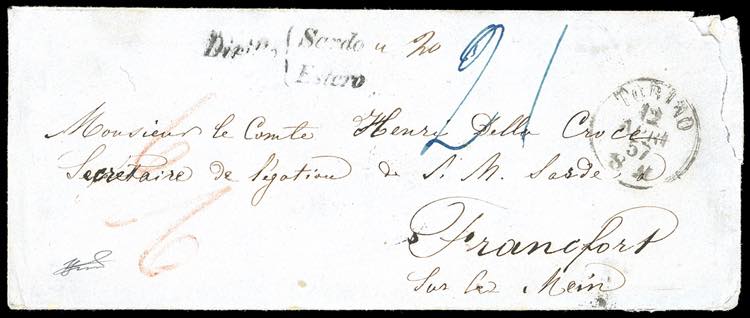 Diritto { Sardo
Estero
20
21
TORINO
12
57
Monsieur le Comte Henri Della Croce
Secrétaire de légation de S. M. Sarde à
Francfort
sur le Mein